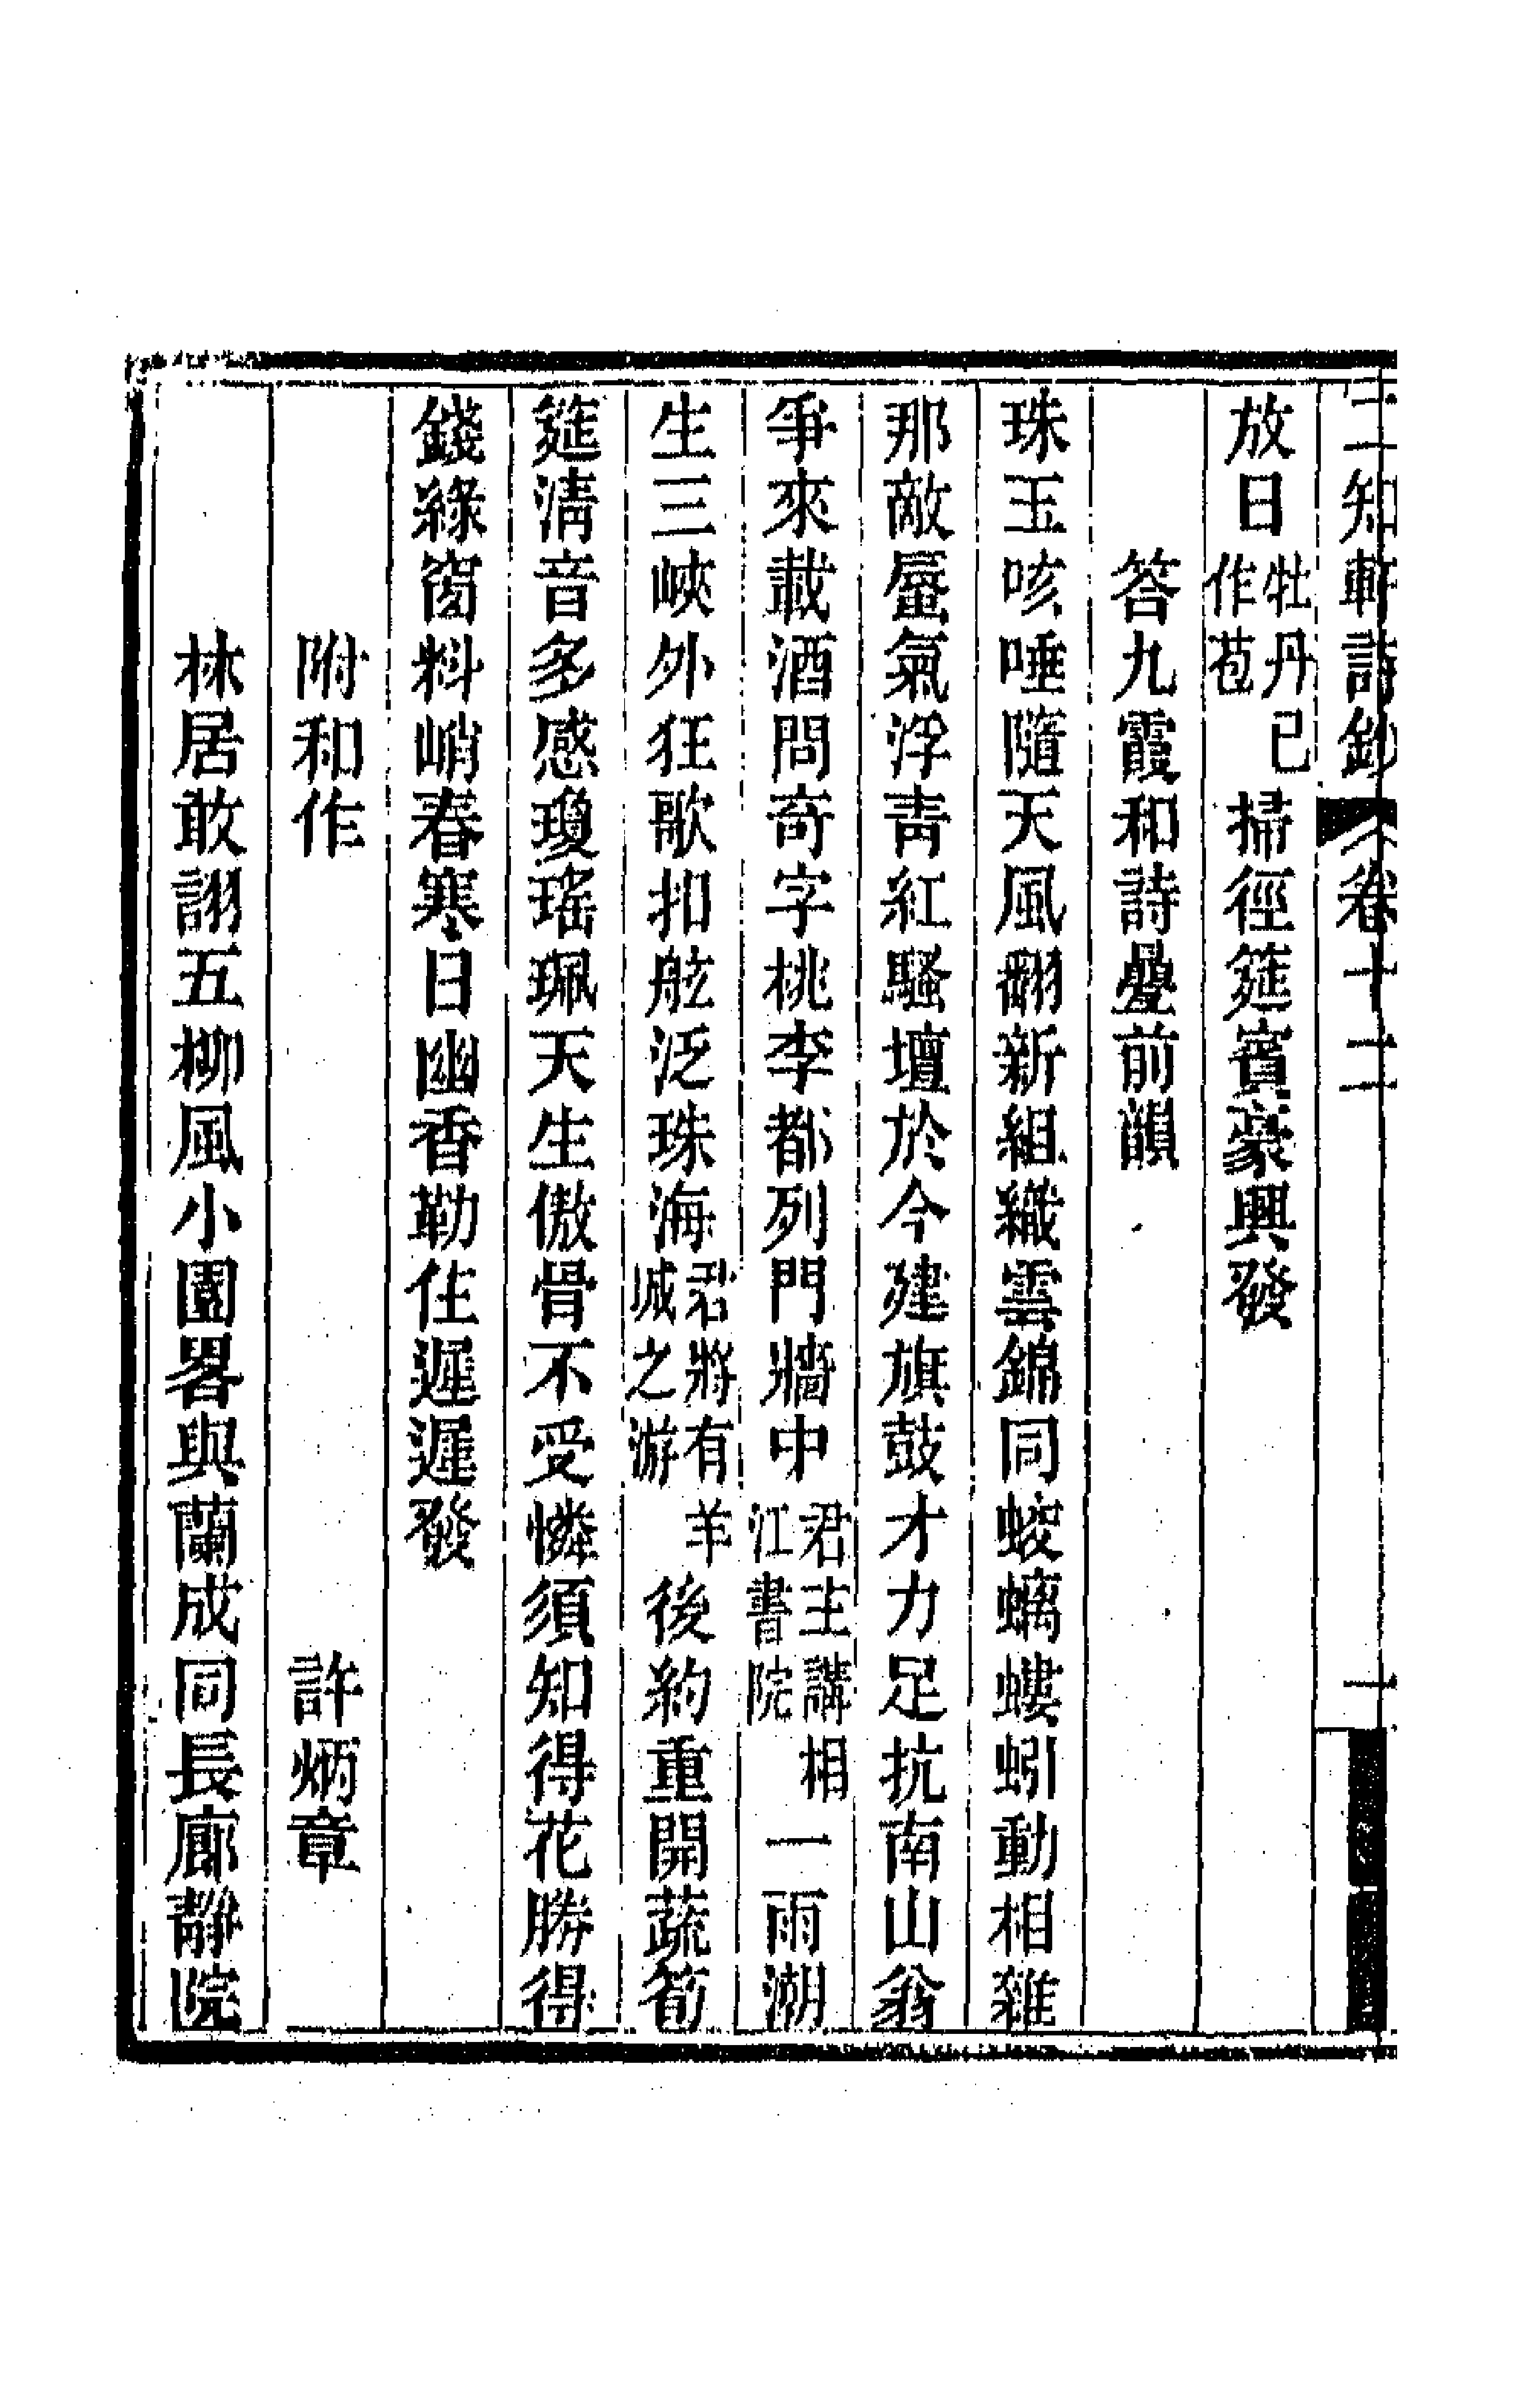 二知軒詩鈔 卷十二 一
放日牡丹已作苞掃徑筵賓豪興發
答九霞和詩疊前韻
珠玉咳唾隨天風翻新組織雲錦同蛟螭螻蚓動相雜
那敵蜃氣浮青紅騷壇於今建旗鼓才力足抗南山翁
爭來載酒問奇字桃李都列門牆中君主講相江書院一雨湖
生三峽外狂歌扣舷泛珠海君將有羊城之游後約重開蔬筍
筵清音多感瓊瑤珮天生傲骨不受憐須知得花勝得
錢綠窗料峭春寒日幽香勒住遲遲發
附和作 許炳章
林居敢詡五柳風小園畧與蘭成同長廊靜院